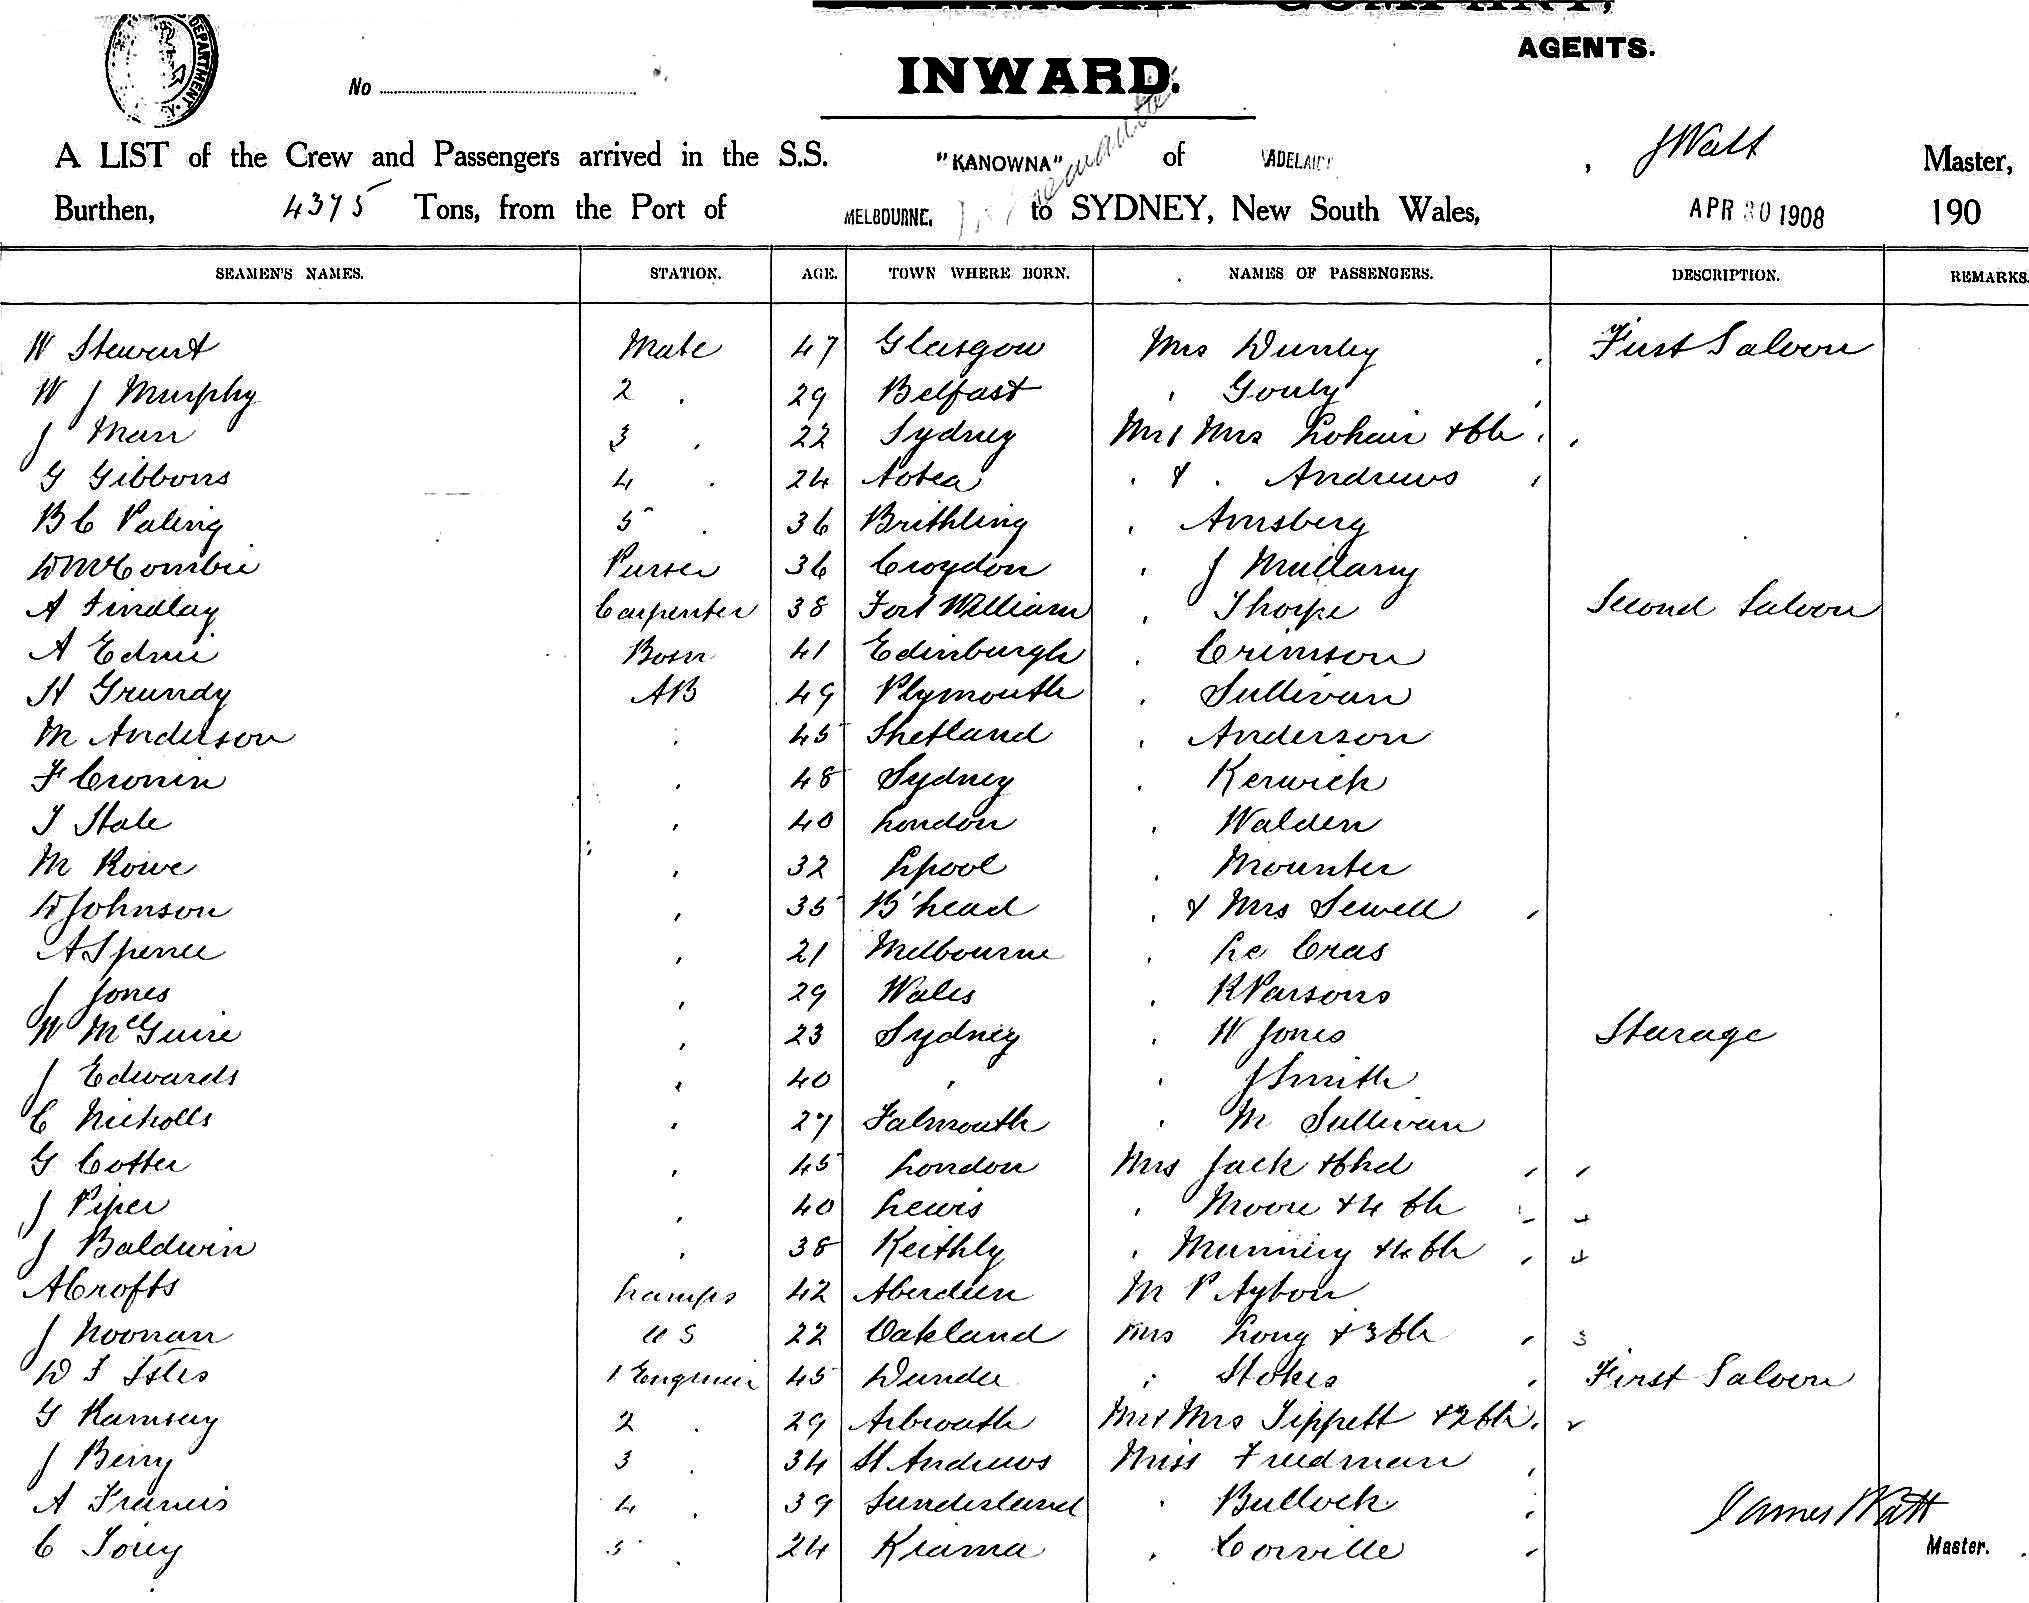 COMPANY,
AGENTS.
DEPARTMENT
No
INWARD.
A LIST of the Crew and Passengers arrived in the S.S. "KANOWNA" of ADELAIDE, J Watt Master,
Burthen, 4375 Tons, from the Port of MELBOURNE, to SYDNEY, New South Wales, APR 30 1908 190
SEAMEN'S NAMES. STATION. AGE. TOWN WHERE BORN. NAMES OF PASSENGERS. DESCRIPTION. REMARKS.
W Stewart Mate 47 Glasgow Mrs First Saloon
W J Murphy 2 . 29 Belfast "
J Marr 3 . 22 Sydney Mr & Mrs + Ch
G Gibbons 4 . 24 Aotea " & " Andrews
B C Paling 5 . 36 Brithling " Arnsberg
D McCombie Purser 36 Croydon " J Mullany
A Findlay Carpenter 38 Fort William " Thorpe Second Saloon
A Ednie Bosn 41 Edinburgh " Crimson
H Grundy AB 49 Plymouth " Sullivan
M Anderson " 45 Shetland " Anderson
F Cronin " 48 Sydney " Kerwick
T Hale " 40 London " Walden
M Rowe " 32 Lpool " Mounter
W Johnson " 35 B'head " & Mrs Sewell
A Spence " 21 Melbourne " Le Cras
J Jones " 29 Wales " R Parsons
W McGuire " 23 Sydney " W Jones Sturage
J Edwards " 40 " " J Smith
C Nicholls " 27 Falmouth " M Sullivan
G Cotter " 45 London Mrs Jack + Chd
J Piper " 40 Lewis " Moore + 4 Ch
J Baldwin " 38 Keithly " + 4 Ch
A Crofts Lamps 42 Aberdeen M P Ayton
J Noonan OS 22 Oakland Mrs Long + 3 Ch 3
W T Isles 1 Engineer 45 Dundee " Stokes First Saloon
G Ramsay 2 . 29 Arbroath Mr & Mrs Tippett + 2 Ch
J Berry 3 . 34 St Andrews Miss Freedman
A Francis 4 . 39 Sunderland " Bullock
C Torey 5 . 24 Kiama " Corville
James Watt
Master.